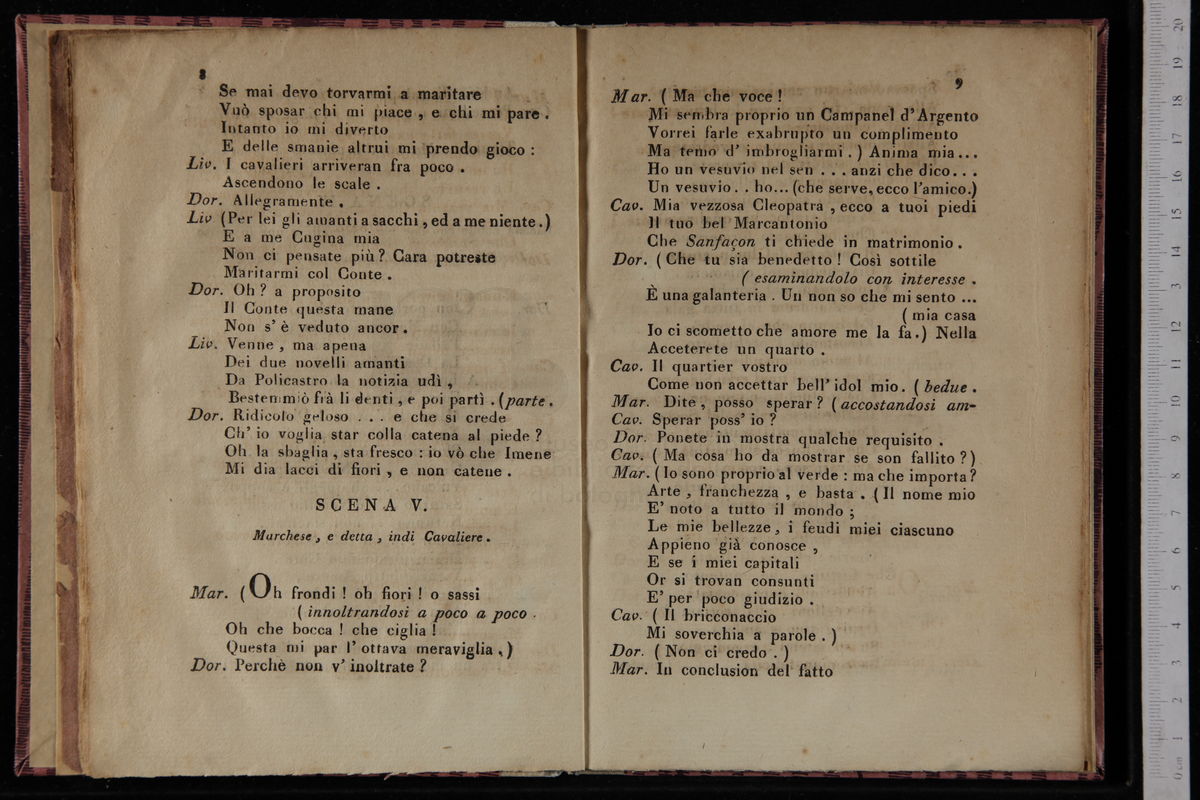 8
Se mai devo torvarmi a maritare
Vuò sposar chi mi piace , e chi mi pare .
Intanto io mi diverto
E delle smanie altrui mi prendo gioco :
Liv. I cavalieri arriveran fra poco .
Ascendono le scale .
Dor. Allegramente .
Liv (Per lei gli amanti a sacchi , ed a me niente .)
E a me Cugina mia
Non ci pensate più ? Cara potreste
Maritarmi col Conte .
Dor. Oh ? a proposito
Il Conte questa mane
Non s' è veduto ancor .
Liv. Venne , ma apena
Dei due novelli amanti
Da Policastro la notizia udì ,
Bestemmiò frà li denti , e poi partì . (parte .
Dor. Ridicolo geloso . . . e che si crede
Ch' io voglia star colla catena al piede ?
Oh la sbaglia , sta fresco : io vò che Imene
Mi dia lacci di fiori , e non catene .
SCENA V.
Marchese , e detta , indi Cavaliere .
Mar. (Oh frondi ! oh fiori ! o sassi
( innoltrandosi a poco a poco .
Oh che bocca ! che ciglia !
Questa mi par l' ottava meraviglia .)
Dor. Perchè non v' inoltrate ?
9
Mar. ( Ma che voce !
Mi sembra proprio un Campanel d' Argento
Vorrei farle exabrupto un complimento
Ma temo d' imbrogliarmi . ) Anima mia ...
Ho un vesuvio nel sen . . . anzi che dico . . .
Un vesuvio . . ho... (che serve, ecco l'amico.)
Cav. Mia vezzosa Cleopatra , ecco a tuoi piedi
Il tuo bel Marcantonio
Che Sanfaçon ti chiede in matrimonio .
Dor. ( Che tu sia benedetto ! Così sottile
( esaminandolo con interesse .
È una galanteria . Un non so che mi sento ...
( mia casa
Io ci scometto che amore me la fa.) Nella
Acceterete un quarto .
Cav. Il quartier vostro
Come non accettar bell' idol mio . ( bedue .
Mar. Dite , posso sperar ? ( accostandosi am-
Cav. Sperar poss' io ?
Dor. Ponete in mostra qualche requisito .
Cav. ( Ma cosa ho da mostrar se son fallito ? )
Mar. ( Io sono proprio al verde : ma che importa ?
Arte , franchezza , e basta . ( Il nome mio
E' noto a tutto il mondo ;
Le mie bellezze , i feudi miei ciascuno
Appieno già conosce ,
E se i miei capitali
Or si trovan consunti
E' per poco giudizio .
Cav. ( Il bricconaccio
Mi soverchia a parole . )
Dor. ( Non ci credo . )
Mar. In conclusion del fatto